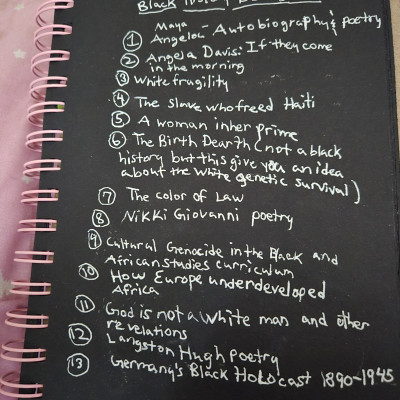 Black History
Maya
① Angelou - Autobiography & poetry
② Angela Davis: If they come
in the morning
③ White fragility
④ The slave who freed Haiti
⑤ A woman in her prime
⑥ The Birth Dearth (not a black
history but this give you an idea
about the white genetic survival)
⑦ The color of Law
⑧ Nikki Giovanni poetry
⑨ Cultural Genocide in the Black and
African studies curriculum
⑩ How Europe underdeveloped
Africa
⑪ God is not a white man and other
revelations
⑫ Langston Hugh Poetry
⑬ Germany's Black Holocast 1890-1945